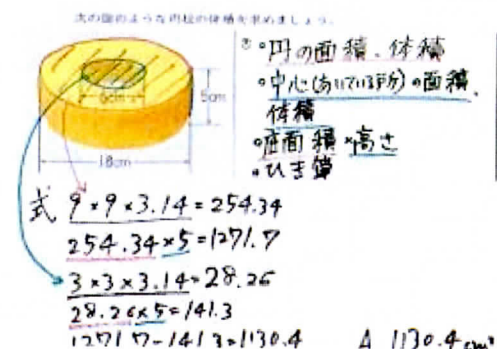 次の図のような円柱の体積を求めましょう。
6cm
5cm
18cm
②
・円の面積、体積
・中心(あいている部分)の面積、
体積
・底面積×高さ
・ひき算
式 9×9×3.14=254.34
254.34×5=1271.7
3×3×3.14=28.26
28.26×5=141.3
1271.7-141.3=1130.4 A 1130.4cm³